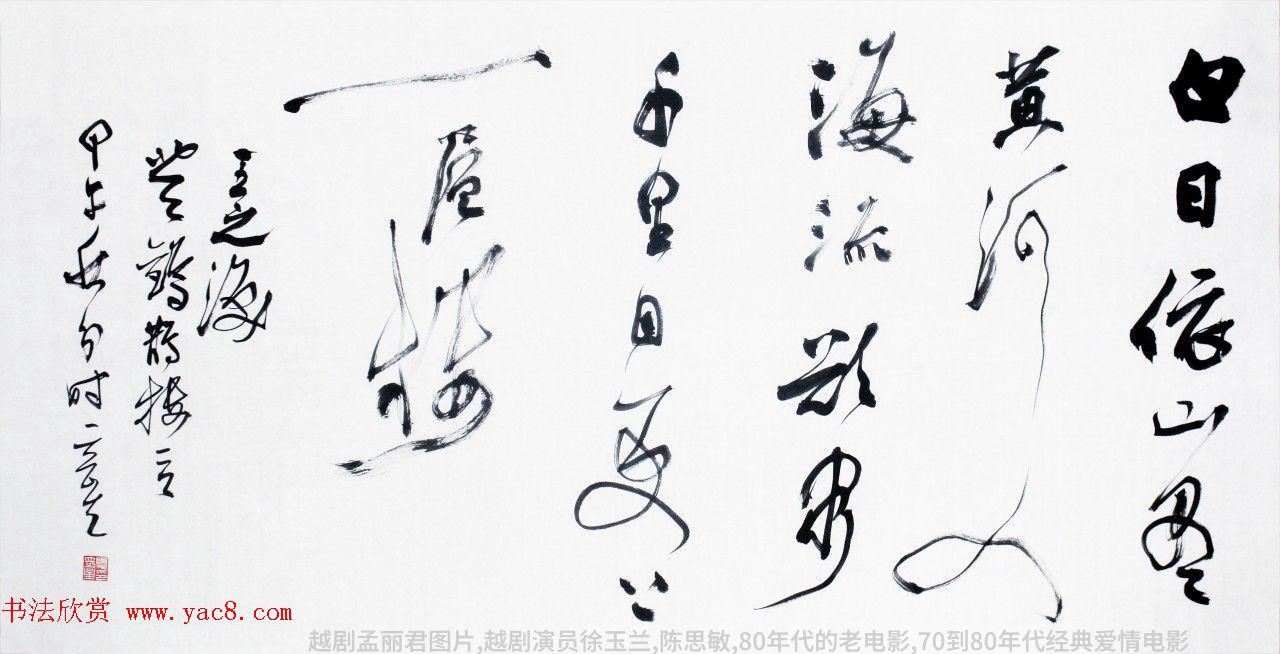 白日依山盡
黃河入
海流欲窮
千里目更上
一層樓
王之渙
登鸛鵲樓
甲午秋分时
书法欣赏 www.yac8.com
越剧孟丽君图片,越剧演员徐玉兰,陈思敏,80年代的老电影,70到80年代经典爱情电影